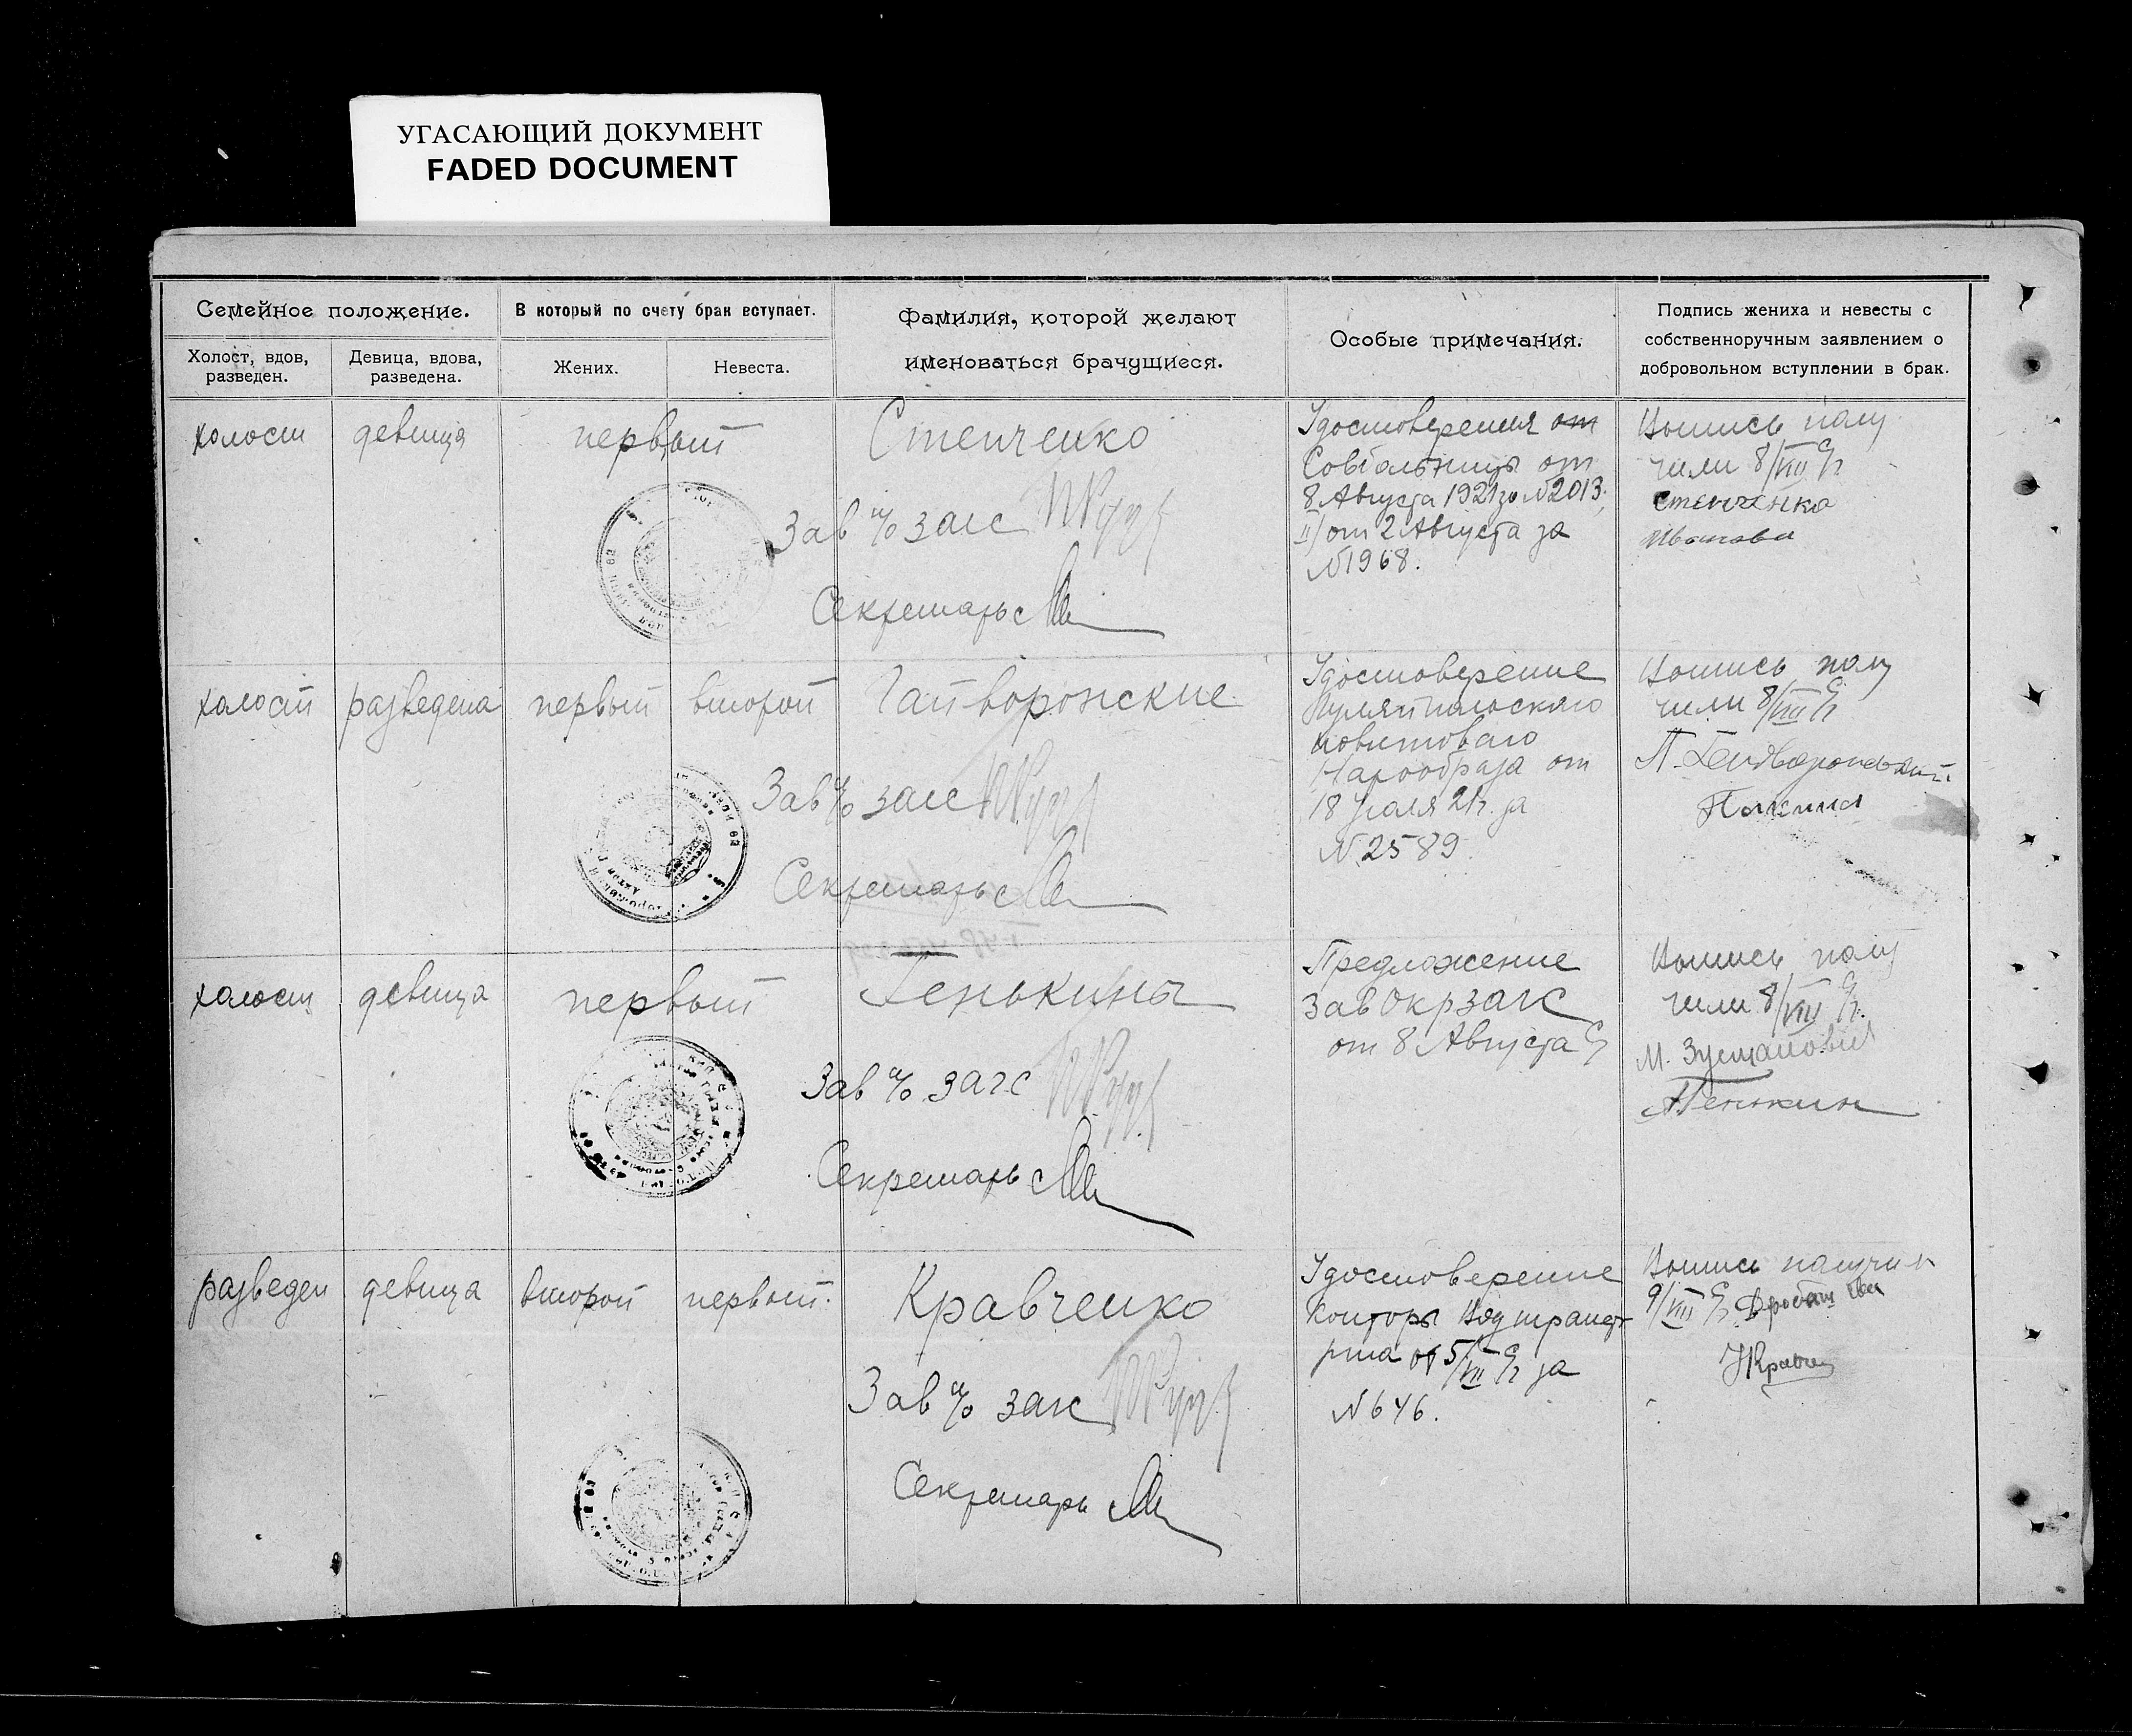 УГАСАЮЩИЙ ДОКУМЕНТ
FADED DOCUMENT
Семейное положение.
В который по счету брак вступает.
Фамилия, которой желают
именоваться брачущиеся.
Особые примечания.
Подпись жениха и невесты с
собственноручным заявлением о
добровольном вступлении в брак.
Холост, вдов,
разведен.
Девица, вдова,
разведена.
Жених.
Невеста.
холост
девица
первый
Стенченко
Зав п/о загс
Секретарь
Удостоверения от
Совбольницы от
8 Августа 1921 за №2013,
II) от 2 Августа за
№1968.
Выпись полу
чили 8/VIII
Стенченко
холост
разведена
первый
второй
Гайворонские
Зав п/о загс
Секретарь
Удостоверение
повитоваго
Наробраза от
18 Июля 21г. за
№2589.
Выпись полу
чили 8/VIII
П. Гайворонский
холост
девица
первый
Генькины
Зав п/о загс
Секретарь
Предложение
Зав Окрзагс
от 8 Августа
Выпись полу
чили 8/VIII
М.
Генькин
разведен
девица
второй
первый.
Кравченко
Зав п/о загс
Секретарь
Удостоверение
Конторы Водтранс
от 5/VIII за
№646.
Выпись получил
9/VIII